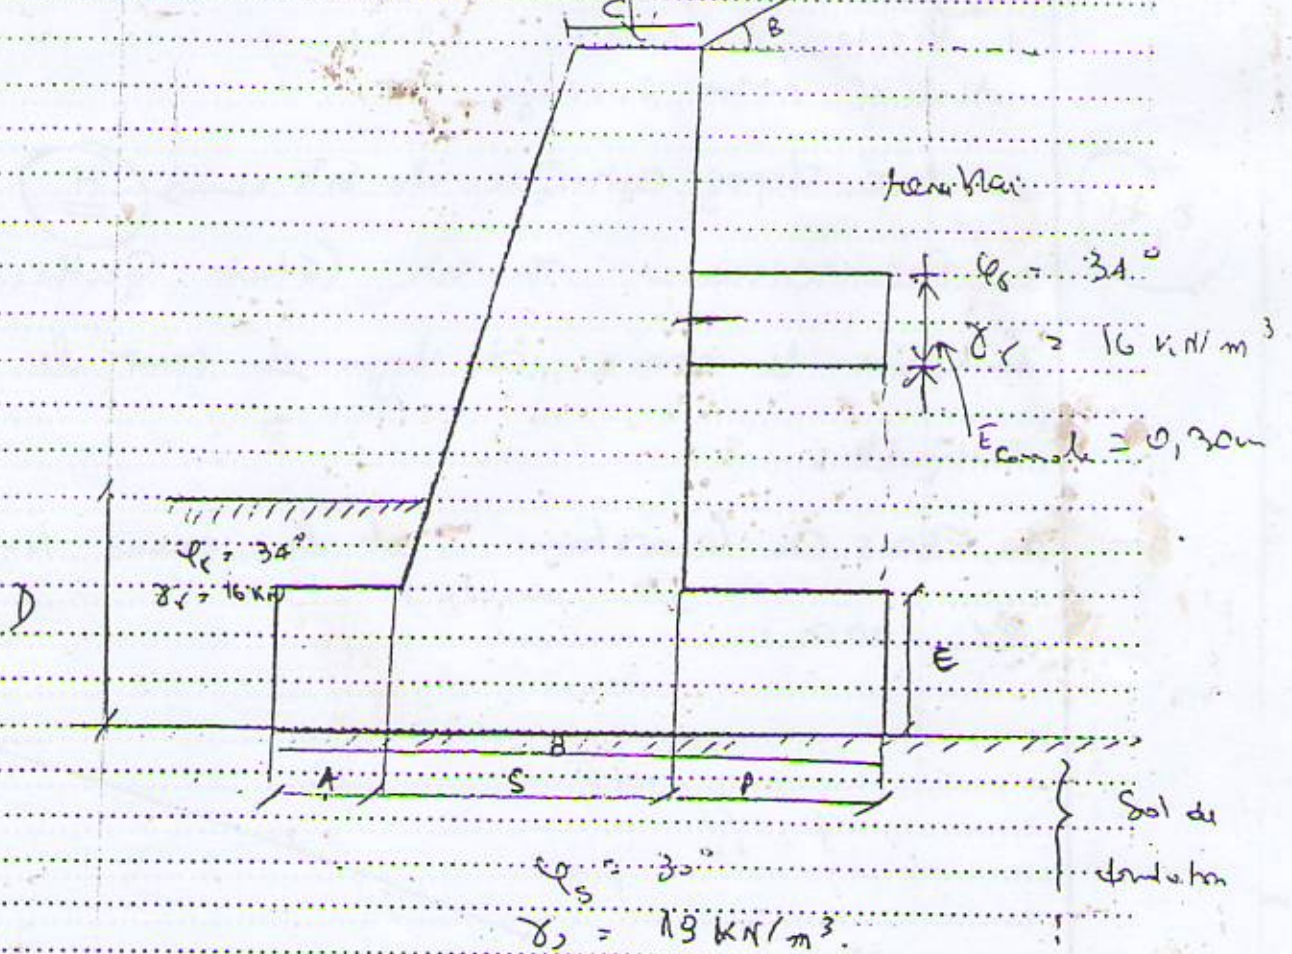 C
B
remblai
φr = 34°
γr = 16 kN/m³
Econsole = 0,30m
φr = 34°
γr = 16 kN
D
E
B
A S P
Sol de
fondation
φs = 30°
γs = 19 KN/m³.